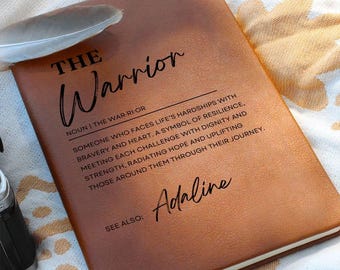 THE
Warrior
NOUN | THE WAR·RI·OR
SOMEONE WHO FACES LIFE'S HARDSHIPS WITH
BRAVERY AND HEART, A SYMBOL OF RESILIENCE,
MEETING EACH CHALLENGE WITH DIGNITY AND
STRENGTH, RADIATING HOPE AND UPLIFTING
THOSE AROUND THEM THROUGH THEIR JOURNEY.
SEE ALSO: Adaline